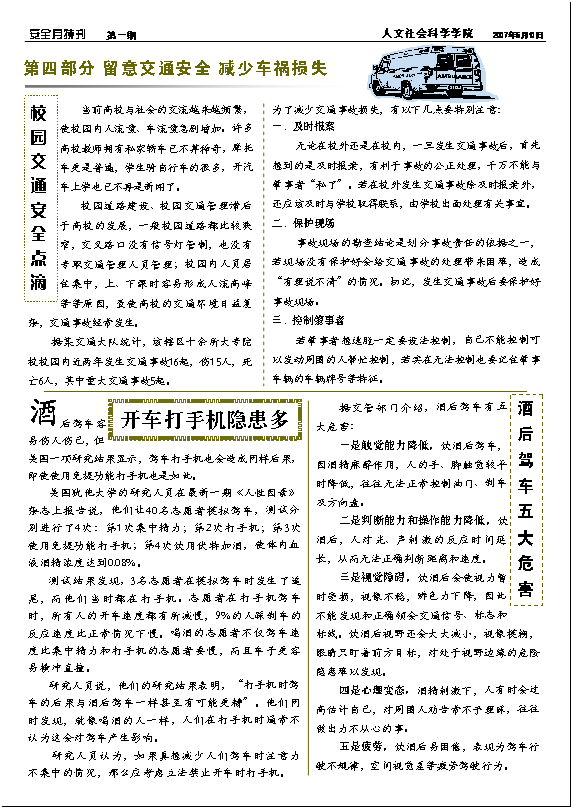 安全月特刊 第一期 人文社会科学学院 2007年6月10日
第四部分 留意交通安全 减少车祸损失
AMBULANCE
校园交通安全点滴
当前高校与社会的交流越来越频繁，
使校园内人流量、车流量急剧增加，许多
高校教师拥有私家轿车已不算稀奇，摩托
车更是普遍，学生骑自行车的很多，开汽
车上学也已不再是新闻了。
校园道路建设、校园交通管理滞后
于高校的发展，一般校园道路都比较狭
窄，交叉路口没有信号灯管制，也没有
专职交通管理人员管理；校园内人员居
住集中，上、下课时容易形成人流高峰
等等原因，致使高校的交通环境日益复
杂，交通事故经常发生。
据某交通大队统计，该辖区十余所大专院
校校园内近两年发生交通事故16起，伤15人，死
亡6人，其中重大交通事故5起。
为了减少交通事故损失，有以下几点要特别注意：
一．及时报案
无论在校外还是在校内，一旦发生交通事故后，首先
想到的是及时报案，有利于事故的公正处理，千万不能与
肇事者“私了”。若在校外发生交通事故除及时报案外，
还应该及时与学校取得联系，由学校出面处理有关事宜。
二．保护现场
事故现场的勘查结论是划分事故责任的依据之一，
若现场没有保护好会给交通事故的处理带来困难，造成
“有理说不清”的情况。切记，发生交通事故后要保护好
事故现场。
三．控制肇事者
若肇事者想逃脱一定要设法控制，自己不能控制可
以发动周围的人帮忙控制，若实在无法控制也要记住肇事
车辆的车辆牌号等特征。
开车打手机隐患多
酒后驾车容
易伤人伤己，但
美国一项研究结果显示，驾车打手机也会造成同样后果，
即使使用免提功能打手机也是如此。
美国犹他大学的研究人员在最新一期《人性因素》
杂志上报告说，他们让40名志愿者模拟驾车，测试分
别进行了4次：第1次集中精力；第2次打手机；第3次
使用免提功能打手机；第4次饮用伏特加酒，使体内血
液酒精浓度达到0.08%。
测试结果发现，3名志愿者在模拟驾车时发生了追
尾，而他们当时都在打手机。志愿者在打手机驾车
时，所有人的开车速度都有所减慢，9%的人踩刹车的
反应速度比正常情况下慢。喝酒的志愿者不仅驾车速
度比集中精力和打手机的志愿者要慢，而且车子更容
易横冲直撞。
研究人员说，他们的研究结果表明，“打手机时驾
车的后果与酒后驾车一样甚至有可能更糟”。他们同
时发现，就像喝酒的人一样，人们在打手机时通常不
认为这会对驾车产生影响。
研究人员认为，如果真想减少人们驾车时注意力
不集中的情况，那么应考虑立法禁止开车时打手机。
酒后驾车五大危害
据交管部门介绍，酒后驾车有五
大危害：
一是触觉能力降低。饮酒后驾车，
因酒精麻醉作用，人的手、脚触觉较平
时降低，往往无法正常控制油门、刹车
及方向盘。
二是判断能力和操作能力降低。饮
酒后，人对光、声刺激的反应时间延
长，从而无法正确判断距离和速度。
三是视觉障碍。饮酒后会使视力暂
时受损，视像不稳，辨色力下降，因此
不能发现和正确领会交通信号、标志和
标线。饮酒后视野还会大大减小，视像模糊，
眼睛只盯着前方目标，对处于视野边缘的危险
隐患难以发现。
四是心理变态。酒精刺激下，人有时会过
高估计自己，对周围人劝告常不予理睬，往往
做出力不从心的事。
五是疲劳。饮酒后易困倦，表现为驾车行
驶不规律，空间视觉差等疲劳驾驶行为。